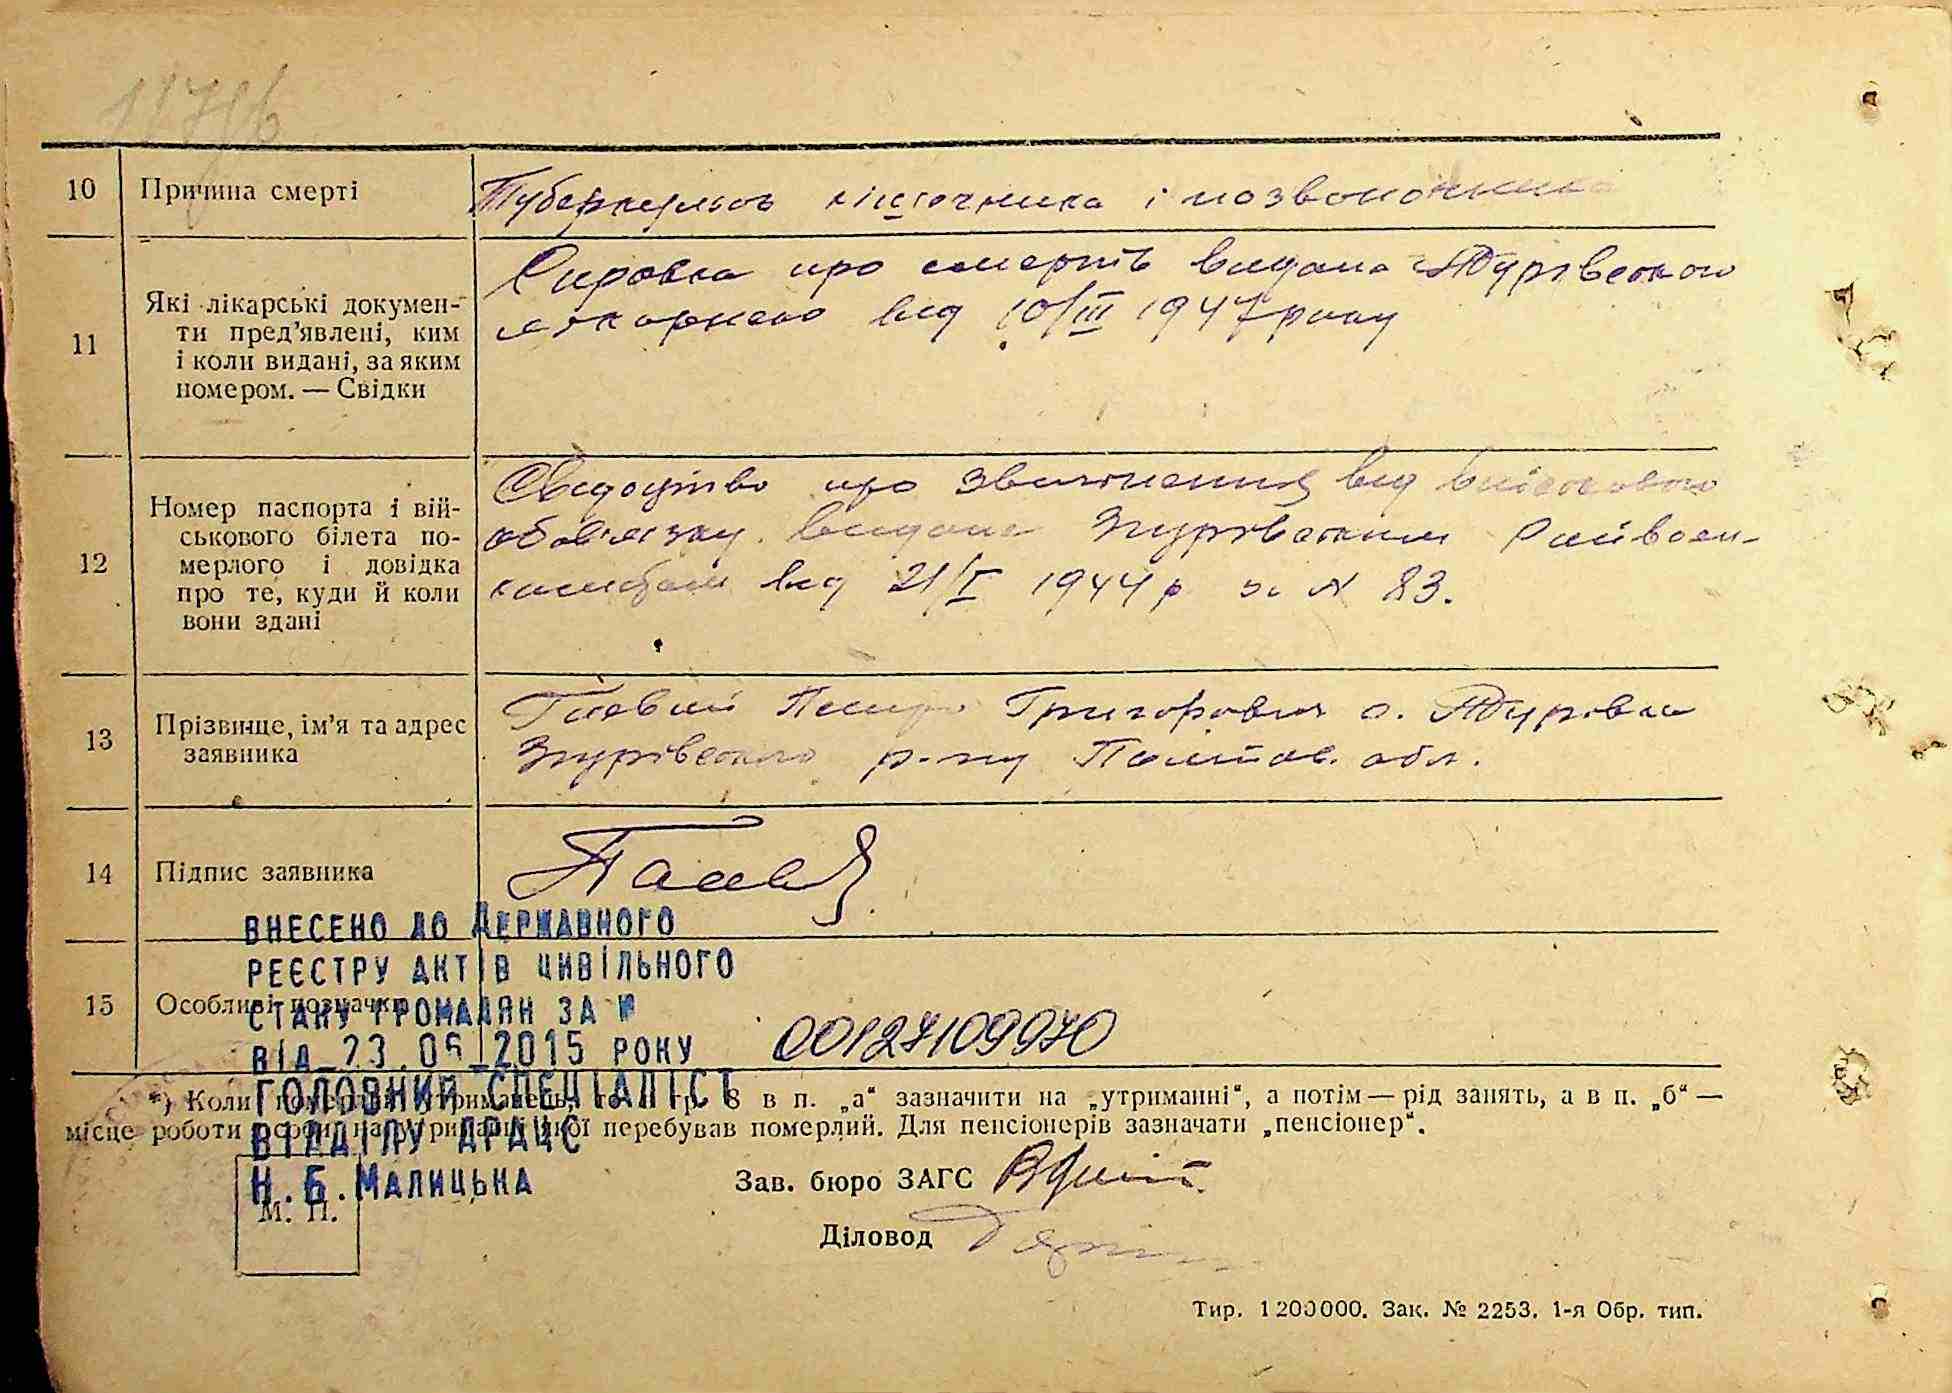 10 Причина смерті
Туберкульоз кішечника і позвоночника
11 Які лікарські докумен-
ти пред'явлені, ким
і коли видані, за яким
номером. — Свідки
Справка про смерть видана
лікарнею від 10/III 1947 року
12 Номер паспорта і вій-
ськового білета по-
мерлого і довідка
про те, куди й коли
вони здані
Свідоцтво про звільнення від військового
обов'язку видане Згурівським Райвоен-
коматом від 21/I 1944 р за № 83.
13 Прізвище, ім'я та адрес
заявника
Григорович с.
Згурівського р-ну Полтав. обл.
14 Підпис заявника
15 Особливі позначки
ВНЕСЕНО ДО ДЕРЖАВНОГО
РЕЄСТРУ АКТІВ ЦИВІЛЬНОГО
СТАНУ ГРОМАДЯН ЗА №
00127109970
ВІД 23.06 2015 РОКУ
ГОЛОВНИЙ СПЕЦІАЛІСТ
ВІДДІЛУ ДРАЦС
Н.Б.МАЛИЦЬКА
*) Коли померлий утриманець, то в гр. 8 в п. „а“ зазначити на „утриманні“, а потім — рід занять, а в п. „б“ —
місце роботи особи, на утриманні якої перебував померлий. Для пенсіонерів зазначати „пенсіонер“.
М. П.
Зав. бюро ЗАГС
Діловод
Тир. 1200000. Зак. № 2253. 1-я Обр. тип.